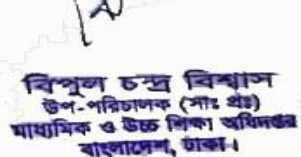 বিপুল চন্দ্র বিশ্বাস
উপ-পরিচালক (সাঃ প্রঃ)
মাধ্যমিক ও উচ্চ শিক্ষা অধিদপ্তর
বাংলাদেশ, ঢাকা।